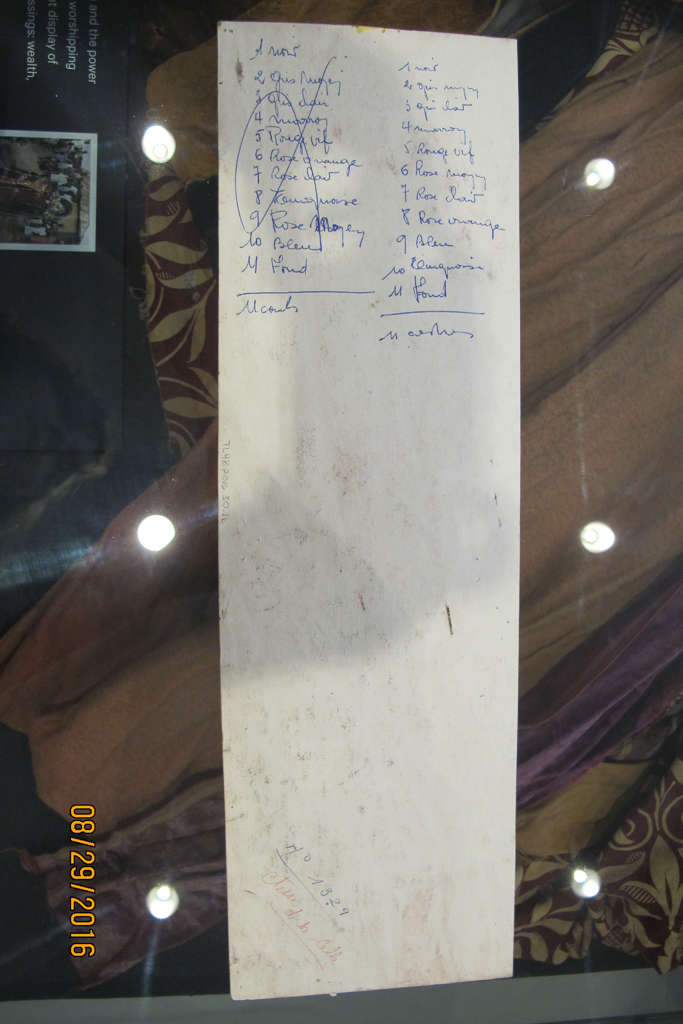 and the power
worshipping
t display of
ssings: wealth,
1 noir
2 gris moyen
3 gris clair
4 marron
5 Rouge vif
6 Rose orange
7 Rose clair
8 Turquoise
9 Rose Moyen
10 Bleu
11 Fond
11
1 noir
2 gris moyen
3 gris clair
4 marron
5 Rouge vif
6 Rose moyen
7 Rose clair
8 Rose orange
9 Bleu
10 Turquoise
11 Fond
11
no 1329
08/29/2016